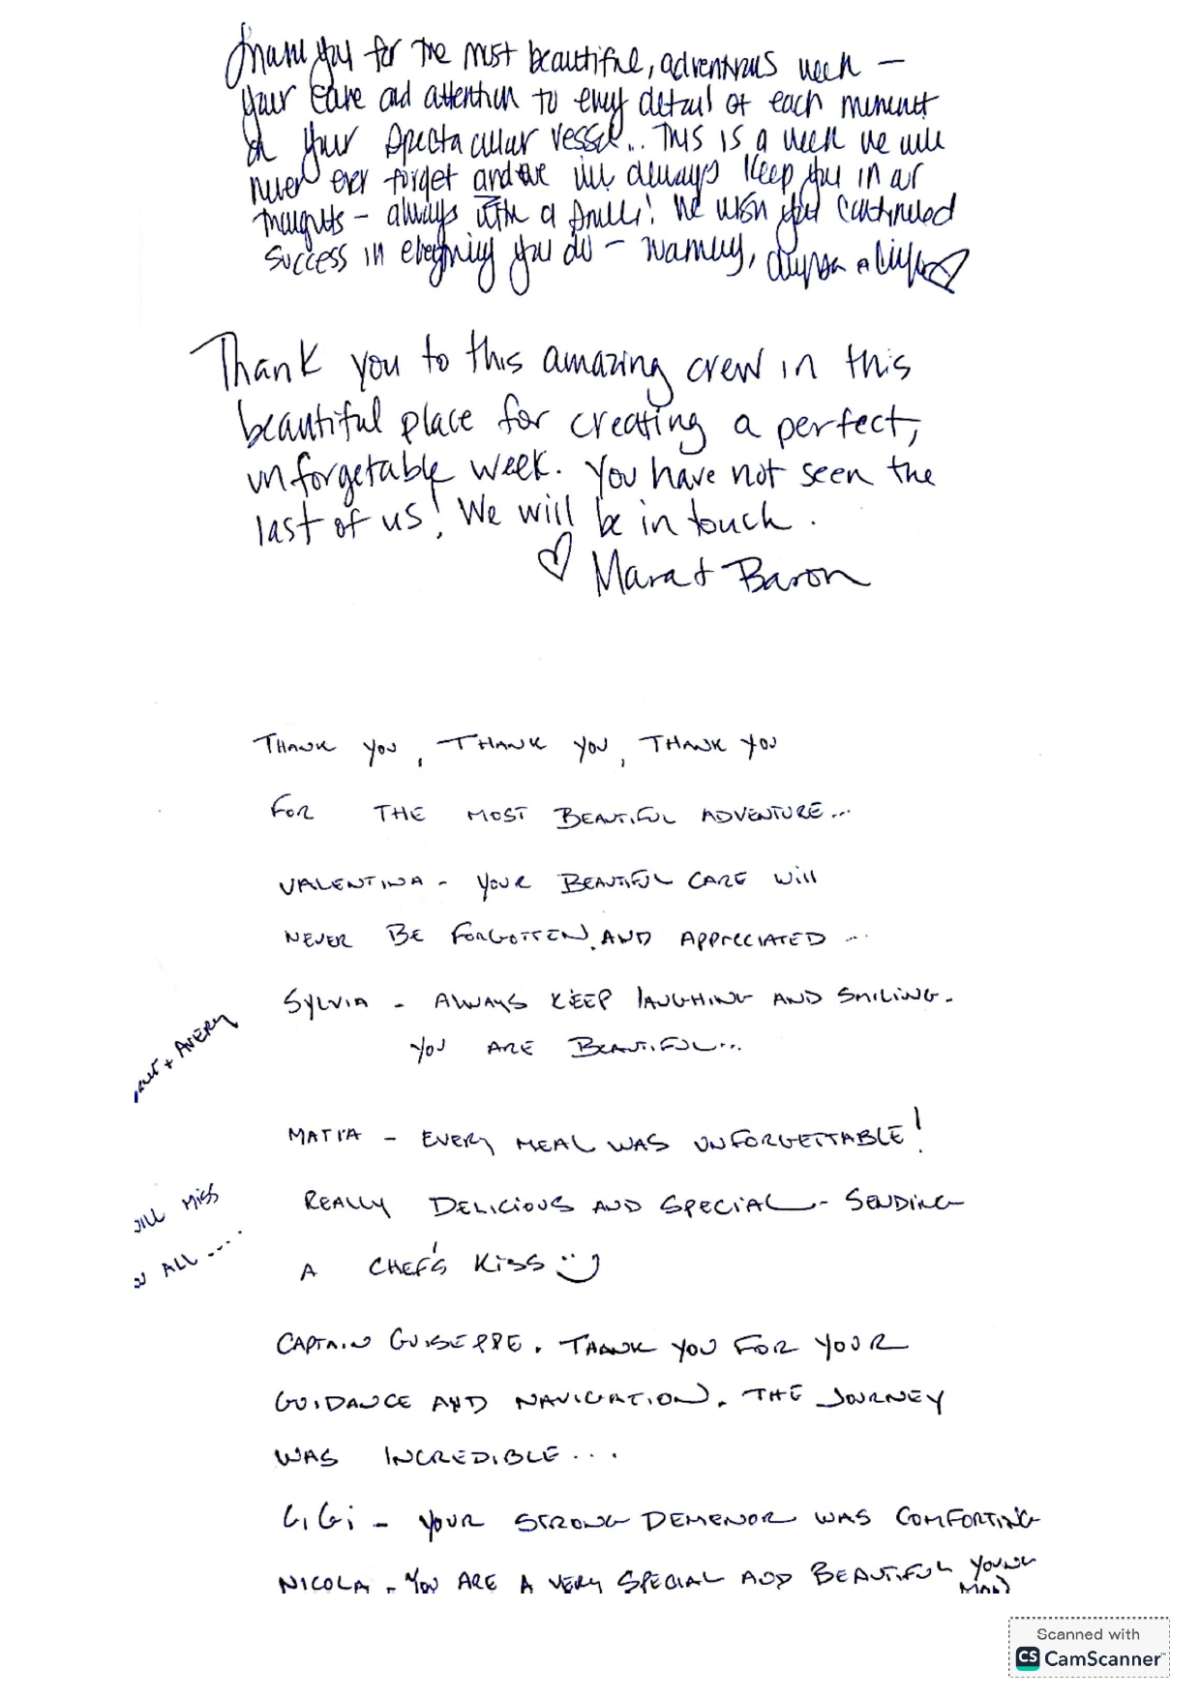 Thank you for the most beautiful, adventrous week —
your care and attention to every detail of each moment
on your spectacular vessel... This is a week we will
never ever forget and we will always keep you in our
thoughts — always with a smile! We wish you continued
success in everything you do —
Thank you to this amazing crew in this
beautiful place for creating a perfect,
unforgetable week. You have not seen the
last of us! We will be in touch.
♡ Mara + Baron
THANK YOU, THANK YOU, THANK YOU
FOR THE MOST BEAUTIFUL ADVENTURE...
VALENTINA - YOUR BEAUTIFUL CARE Will
NEVER BE FORGOTTEN AND APPRECIATED ...
SYLVIA - ALWAYS KEEP LAUGHING AND SMILING.
YOU ARE BEAUTIFUL...
+ AVERY
MATIA - EVERY MEAL WAS UNFORGETTABLE!
REALLY DELICIOUS AND SPECIAL - SENDING
A CHEF'S KISS
MISS
ALL ....
CAPTAIN GUISEPPE. THANK YOU FOR YOUR
GUIDANCE AND NAVIGATION. THE JOURNEY
WAS INCREDIBLE...
GiGi - YOUR STRONG DEMENOR WAS COMFORTING
NICOLA - YOU ARE A VERY SPECIAL AND BEAUTIFUL YOUNG
MAN
Scanned with
CS CamScanner